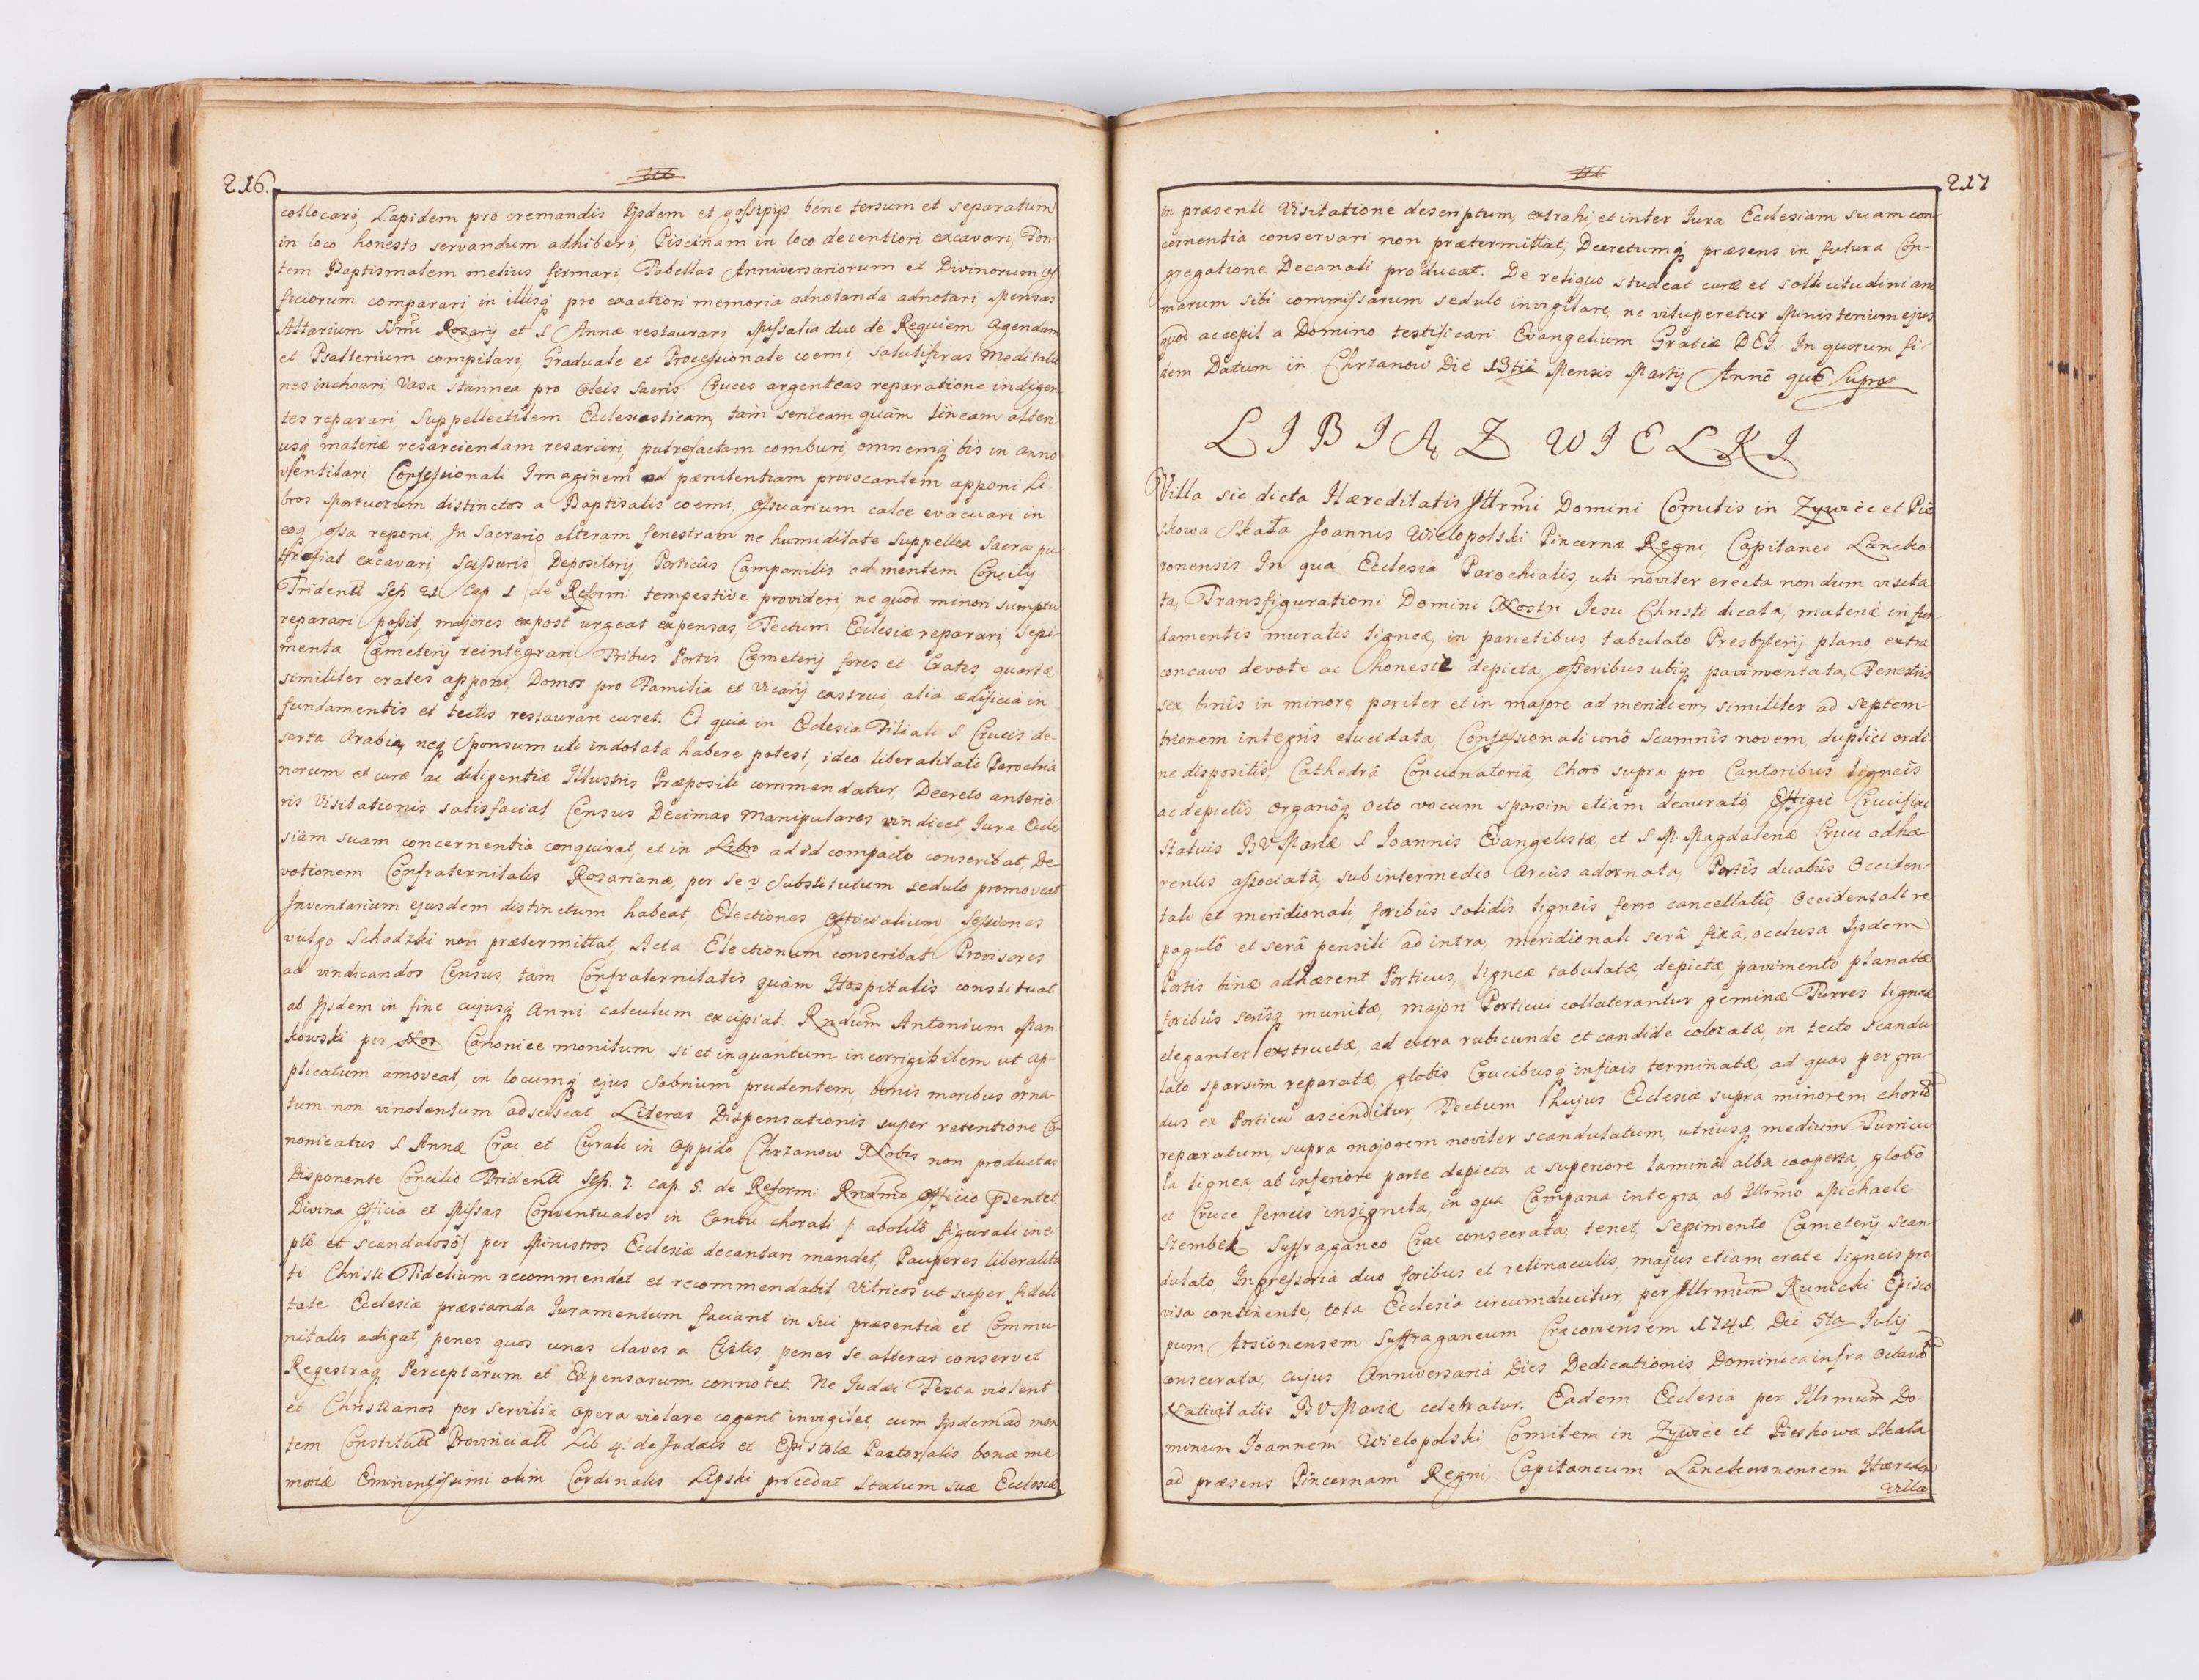 216.
collocari, Lapidem pro cremandis Ijsdem et gossipijs bene tersum et separatum
in loco honesto servandum adhiberi, Piscinam in loco decentiori excavari, Fon-
tem Baptismalem melius firmari, Tabellas Anniversariorum et Divinorum Of
ficiorum comparari in illisq pro exactiori memoria adnotanda adnotari, Mensas
Altarium SSmi Rosarij et S Annæ restaurari, Missalia duo de Requiem Agendam
et Psalterium compilari, Graduale et Processionale coemi, salutiferas Meditatio
nes inchoari, Vasa stannea pro Oleis Sacris, Cruces argenteas reparatione indigen
tes reparari, Suppellectilem Ecclesiasticam, tam sericeam quam lineam alteri
usq materiæ resarciendam resarciri, putrefactam comburi, omnemq bis in anno
ventilari, Confessionali Imaginem ad pænitentiam provocantem apponi Li
bros Mortuorum distinctos a Baptisalis coemi, Ossuarium calce evacuari in
eoq ossa reponi. In Sacrario alteram fenestram ne humiditate suppellex sacra pu
trefiat excavari, Scissuris Depositorij, Porticus Campanilis ad mentem Concilij
Tridentt Sess 21 Cap 1 de Reform tempestive provideri, ne quod minori sumptu
reparari possit, majores expost urgeat expensas, Tectum Ecclesiæ reparari, Sepi
menta Cæmeterij reintegrari, Tribus Portis Cæmeterij fores et Crates, quartæ
similiter crates apponi, Domos pro Familia et Vicarij exstrui, alia ædificia in
fundamentis et tectis restaurari curet. Et quia in Ecclesia Filiali S Crucis de-
serta Arabia, neq Sponsum uti indotata habere potest, ideo liberalitati Parochia
norum et curæ ac diligentiæ Illustris Præpositi commendatur, Decreto anterio-
ris Visitationis satisfaciat Census Decimas Manipulares vindicet, Jura Eccle
siam suam concernentia conquirat, et in Libro ad id compacto conscribat, De-
votionem Confraternitatis Rosarianæ, per se v Substitutum sedulo promoveat
Inventarium ejusdem distinctum habeat, Electiones Officialium, Sessiones
vulgo Schadzki non prætermittat, Acta Electionum conscribat Provisores
ad vindicandos Census, tam Confraternitatis quam Hospitalis constituat
ab Ijsdem in fine cujusq Anni calculum excipiat. Rndum Antonium Man-
kowski per Nos Canonice monitum si et inquantum incorrigibilem ut ap-
plicatum amoveat, in locumq ejus Sobrium prudentem, bonis moribus orna-
tum non vinolentum adsciscat Literas Dispensationis super retentione Ca
nonicatus S Annæ Crac et Curati in Oppido Chrzanow Nobis non productas
Disponente Concilio Tridentt Sess. 7. cap. 5. de Reform Rndmo Officio præsentet
Divina Officia et Missas Conventuales in Cantu chorali /: abolitô figurali ine
ptô et scandalosô/ per Ministros Ecclesiæ decantari mandet, Pauperes liberalita
ti Christi Fidelium recommendet et recommendabit Vitricos ut super fideli
tate Ecclesiæ præstanda Juramentum faciant in sui præsentia et Commu
nitatis adigat, penes quos unas claves a Cistis, penes se alteras conservet
Regestraq Perceptarum et Expensarum connotet. Ne Judæi Festa violent
et Christianos per servilia opera violare cogant invigilet cum Ijsdem ad men
tem Constitutt Provinciatt Lib 4. de Judæis et Epistolæ Pastoralis bonæ me-
moriæ Eminentissimi olim Cardinalis Lipski procedat Statum suæ Ecclesiæ
217
in præsenti Visitatione descriptum, extrahi, et inter Jura Ecclesiam suam con-
cernentia conservari non prætermittat, Decretumq præsens in futura Con-
gregatione Decanali producat. De reliquo studeat curæ et sollicitudini ani
marum sibi commissarum sedulo invigilare, ne vituperetur Ministerium ejus
quod accepit a Domino testificari Evangelium Gratiæ DEI. In quorum fi-
dem Datum in Chrzanow Die 13tiâ Mensis Martij Annô quô Supra
LIBIĄZ WIELKI
Villa sic dicta Hæreditatis Illrmi Domini Comitis in Zywiec et Pie
skowa Skała Joannis Wielopolski Pincernæ Regni, Capitanei Lancko-
ronensis. In qua Ecclesia Parochialis, uti noviter erecta nondum visita
ta, Transfigurationi Domini Nostri Jesu Christi dicata, materiæ in fun
damentis muratis ligneæ, in parietibus, tabulato Presbyterij plano, extra
concavo devote ac honeste depicta, asseribus ubiq pavimentata, Fenestris
sex, binis in minore pariter et in majore ad meridiem, similiter ad septem-
trionem integris elucidata, Confessionali unô Scamnis novem, duplici ordi
ne dispositis, Cathedrâ Concionatoriâ, Chorô supra pro Cantoribus ligneis
ac depictis Organôq octo vocum sparsim etiam deauratô, Effigiei Crucifixi
Statuis B V Mariæ S Joannis Evangelistæ, et S M. Magdalenæ Cruci adhæ
rentis associatâ, sub intermedio arcus adornata, Portis duabus Occiden-
tali et meridionali, foribus solidis ligneis ferro cancellatis, Occidentali re
pagulô et serâ pensili ad intra, meridionali serâ fixâ, occlusa, Ijsdem
Portis binæ adhærent Porticus, ligneæ tabulatæ, depictæ, pavimento planatæ
foribus serisq munitæ, majori Porticui collaterantur geminæ Turres ligneæ
eleganter exstructæ, ad extra rubicunde et candide coloratæ, in tecto scandu
lato sparsim reparatæ, globis Crucibusq infixis terminatæ, ad quas per gra-
dus ex Porticu ascenditur, Tectum hujus Ecclesiæ supra minorem chorum
reparatum, supra majorem noviter scandulatum, utriusq medium Turricu
la lignea, ab inferiore parte depicta, a superiore laminâ albâ cooperta, globô
et Cruce ferreis insignita, in qua Campana integra ab Illrmo Michaele
Szembek Suffraganeo Crac consecrata, tenet, Sepimento Cæmeterij scan-
dulato, Ingressoria duo foribus et retinaculis, majus etiam crate ligneis pro
visa continente, tota Ecclesia circumducitur, per Illrmum Kunicki Episco
pum Arsionensem Suffraganeum Cracoviensem 1741. Die 5ta Julij
consecrata, cujus Anniversaria Dies Dedicationis, Dominica infra Octavam
Nativitatis B V Mariæ celebratur. Eadem Ecclesia per Illrmum Do-
minum Joannem Wielopolski Comitem in Zywiec et Pieskowa Skała
ad præsens Pincernam Regni, Capitaneum Lanckoronensem Hæredem
Villæ